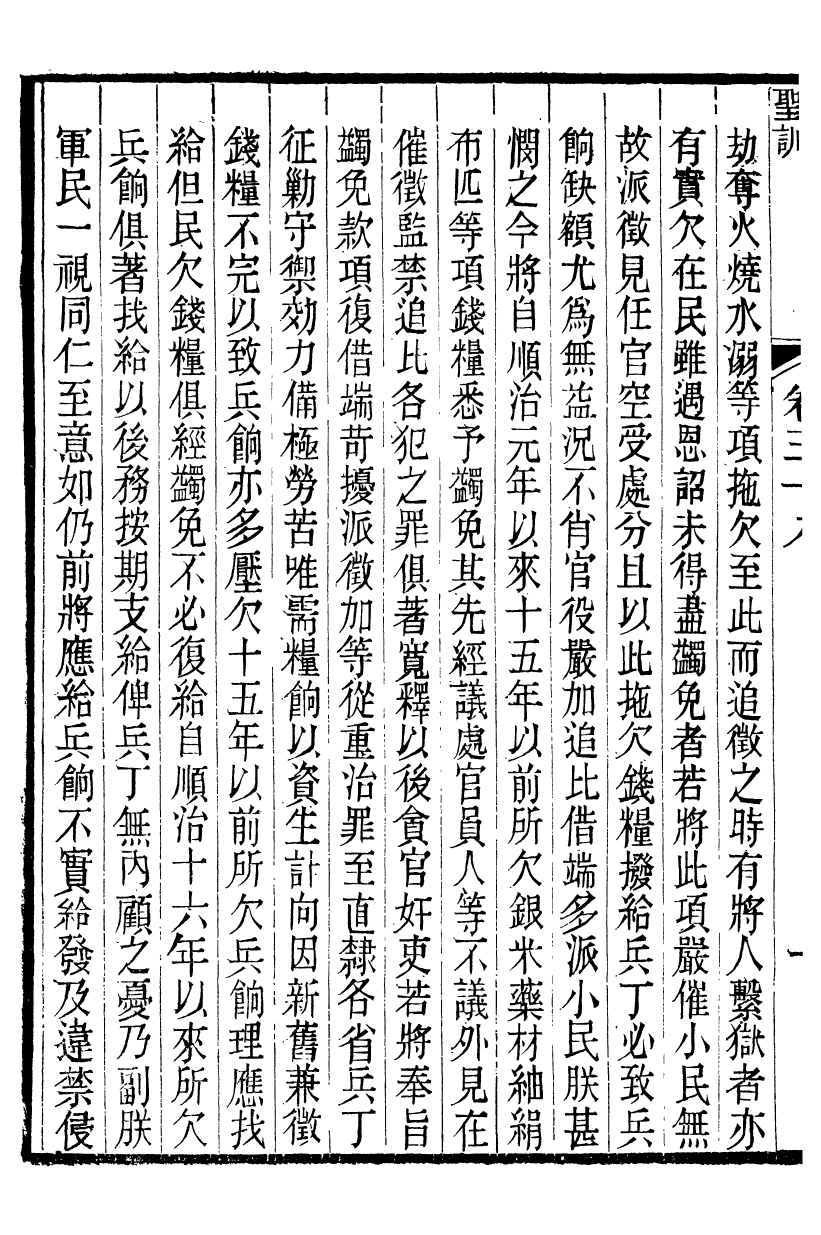 聖訓
卷三十八
一
劫奪火燒水溺等項拖欠至此而追徵之時有將人繫獄者亦
有實欠在民雖遇恩詔未得盡蠲免者若將此項嚴催小民無
故派徵見任官空受處分且以此拖欠錢糧撥給兵丁必致兵
餉缺額尤為無益況不肖官役嚴加追比借端多派小民朕甚
憫之今將自順治元年以來十五年以前所欠銀米藥材紬絹
布匹等項錢糧悉予蠲免其先經議處官員人等不議外見在
催徵監禁追比各犯之罪俱著寬釋以後貪官奸吏若將奉旨
蠲免款項復借端苛擾派徵加等從重治罪至直隸各省兵丁
征勦守禦効力備極勞苦唯需糧餉以資生計向因新舊兼徵
錢糧不完以致兵餉亦多壓欠十五年以前所欠兵餉理應找
給但民欠錢糧俱經蠲免不必復給自順治十六年以來所欠
兵餉俱著找給以後務按期支給俾兵丁無內顧之憂乃副朕
軍民一視同仁至意如仍前將應給兵餉不實給發及違禁侵